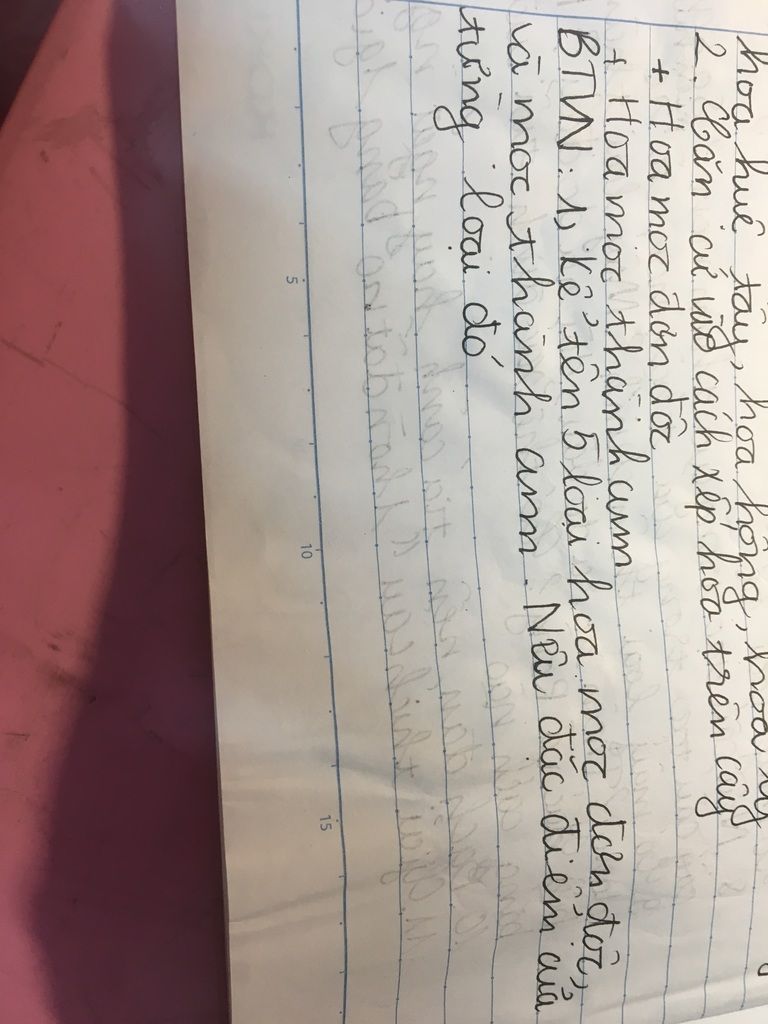 hoa huệ tây, hoa hồng, hoa ly
2. Căn cứ vào cách xếp hoa trên cây
+ Hoa mọc đơn độc
+ Hoa mọc thành cụm
BTVN: 1, Kể tên 5 loại hoa mọc đơn độc,
và mọc thành cụm. Nêu đặc điểm của
từng loại đó
5
10
15